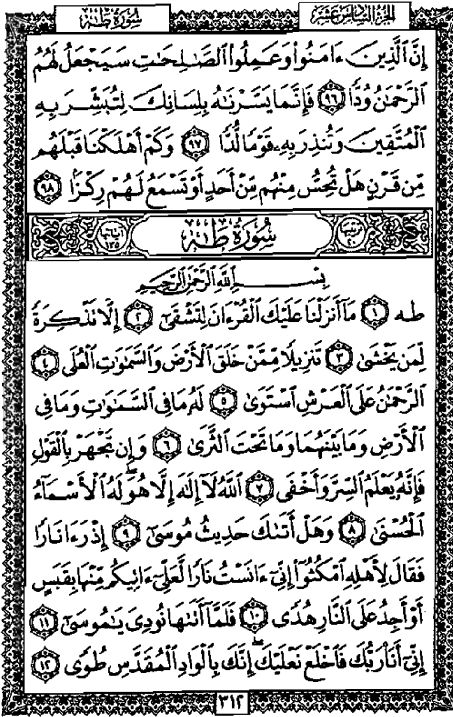 الجزء السادس عشر
سورة طه
إِنَّ ٱلَّذِينَ ءَامَنُوا۟ وَعَمِلُوا۟ ٱلصَّـٰلِحَـٰتِ سَيَجْعَلُ لَهُمُ
ٱلرَّحْمَـٰنُ وُدًّا ٩٦ فَإِنَّمَا يَسَّرْنَـٰهُ بِلِسَانِكَ لِتُبَشِّرَ بِهِ
ٱلْمُتَّقِينَ وَتُنذِرَ بِهِۦ قَوْمًا لُّدًّا ٩٧ وَكَمْ أَهْلَكْنَا قَبْلَهُم
مِّن قَرْنٍ هَلْ تُحِسُّ مِنْهُم مِّنْ أَحَدٍ أَوْ تَسْمَعُ لَهُمْ رِكْزًۢا ٩٨
ترتيبها ٢٠ سُورَةُ طه آياتها ١٣٥
بِسْمِ ٱللَّهِ ٱلرَّحْمَـٰنِ ٱلرَّحِيمِ
طه ١ مَآ أَنزَلْنَا عَلَيْكَ ٱلْقُرْءَانَ لِتَشْقَىٰٓ ٢ إِلَّا تَذْكِرَةً
لِّمَن يَخْشَىٰ ٣ تَنزِيلًا مِّمَّنْ خَلَقَ ٱلْأَرْضَ وَٱلسَّمَـٰوَٰتِ ٱلْعُلَى ٤
ٱلرَّحْمَـٰنُ عَلَى ٱلْعَرْشِ ٱسْتَوَىٰ ٥ لَهُۥ مَا فِى ٱلسَّمَـٰوَٰتِ وَمَا فِى
ٱلْأَرْضِ وَمَا بَيْنَهُمَا وَمَا تَحْتَ ٱلثَّرَىٰ ٦ وَإِن تَجْهَرْ بِٱلْقَوْلِ
فَإِنَّهُۥ يَعْلَمُ ٱلسِّرَّ وَأَخْفَى ٧ ٱللَّهُ لَآ إِلَـٰهَ إِلَّا هُوَ ۖ لَهُ ٱلْأَسْمَآءُ
ٱلْحُسْنَىٰ ٨ وَهَلْ أَتَىٰكَ حَدِيثُ مُوسَىٰٓ ٩ إِذْ رَءَا نَارًا
فَقَالَ لِأَهْلِهِ ٱمْكُثُوٓا۟ إِنِّىٓ ءَانَسْتُ نَارًا لَّعَلِّىٓ ءَاتِيكُم مِّنْهَا بِقَبَسٍ
أَوْ أَجِدُ عَلَى ٱلنَّارِ هُدًى ١٠ فَلَمَّآ أَتَىٰهَا نُودِىَ يَـٰمُوسَىٰٓ ١١
إِنِّىٓ أَنَا۠ رَبُّكَ فَٱخْلَعْ نَعْلَيْكَ ۖ إِنَّكَ بِٱلْوَادِ ٱلْمُقَدَّسِ طُوًى ١٢
٣١٢